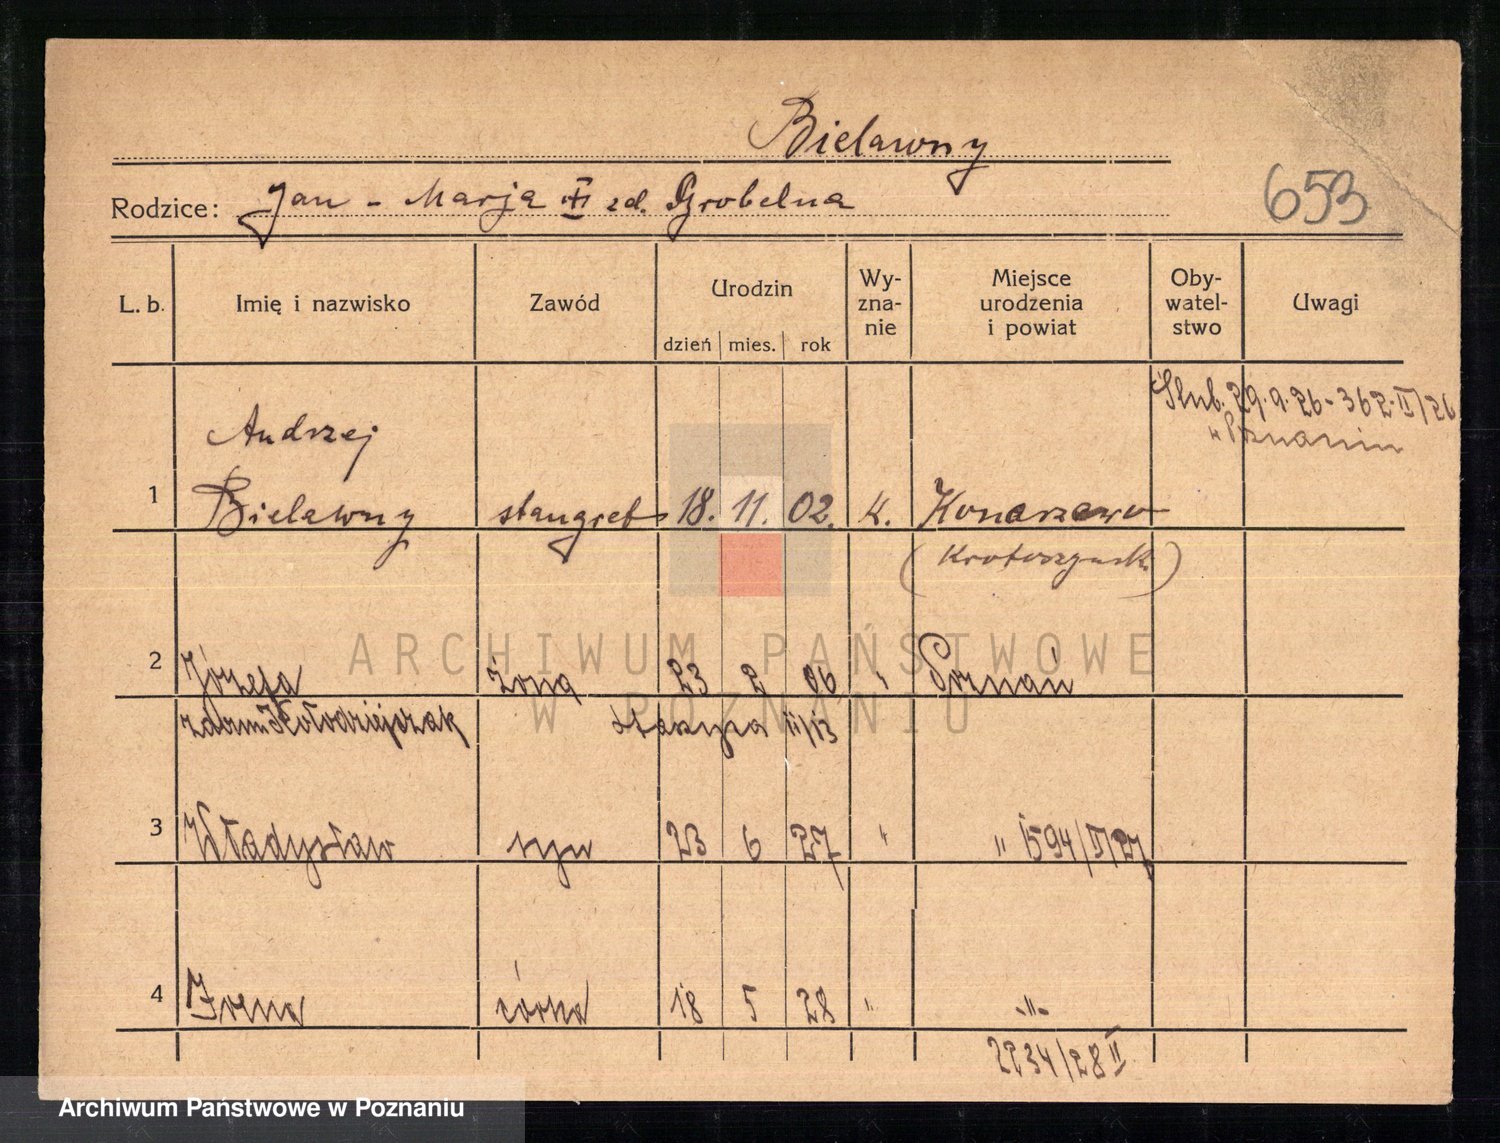 Bielawny
Rodzice: Jan - Marja zd. Grobelna
653
L. b. Imię i nazwisko Zawód Urodzin dzień mies. rok Wy-zna-nie Miejsce urodzenia i powiat Oby-watel-stwo Uwagi
Ślub. 29.9.26-362.II/26
w Poznaniu
Andrzej
1 Bielawny stangret 18. 11. 02. K. Konarzewo
(Krotoszyńsk.)
2 Józefa żona 23 2 06 " Poznań
zdom Kołodziejczak II/13
3 Władysław syn 23 6 27 " " 1594/II/27
4 Irena córka 18 5 28 " -"-
2234/28 II
ARCHIWUM PAŃSTWOWE
W POZNANIU
Archiwum Państwowe w Poznaniu